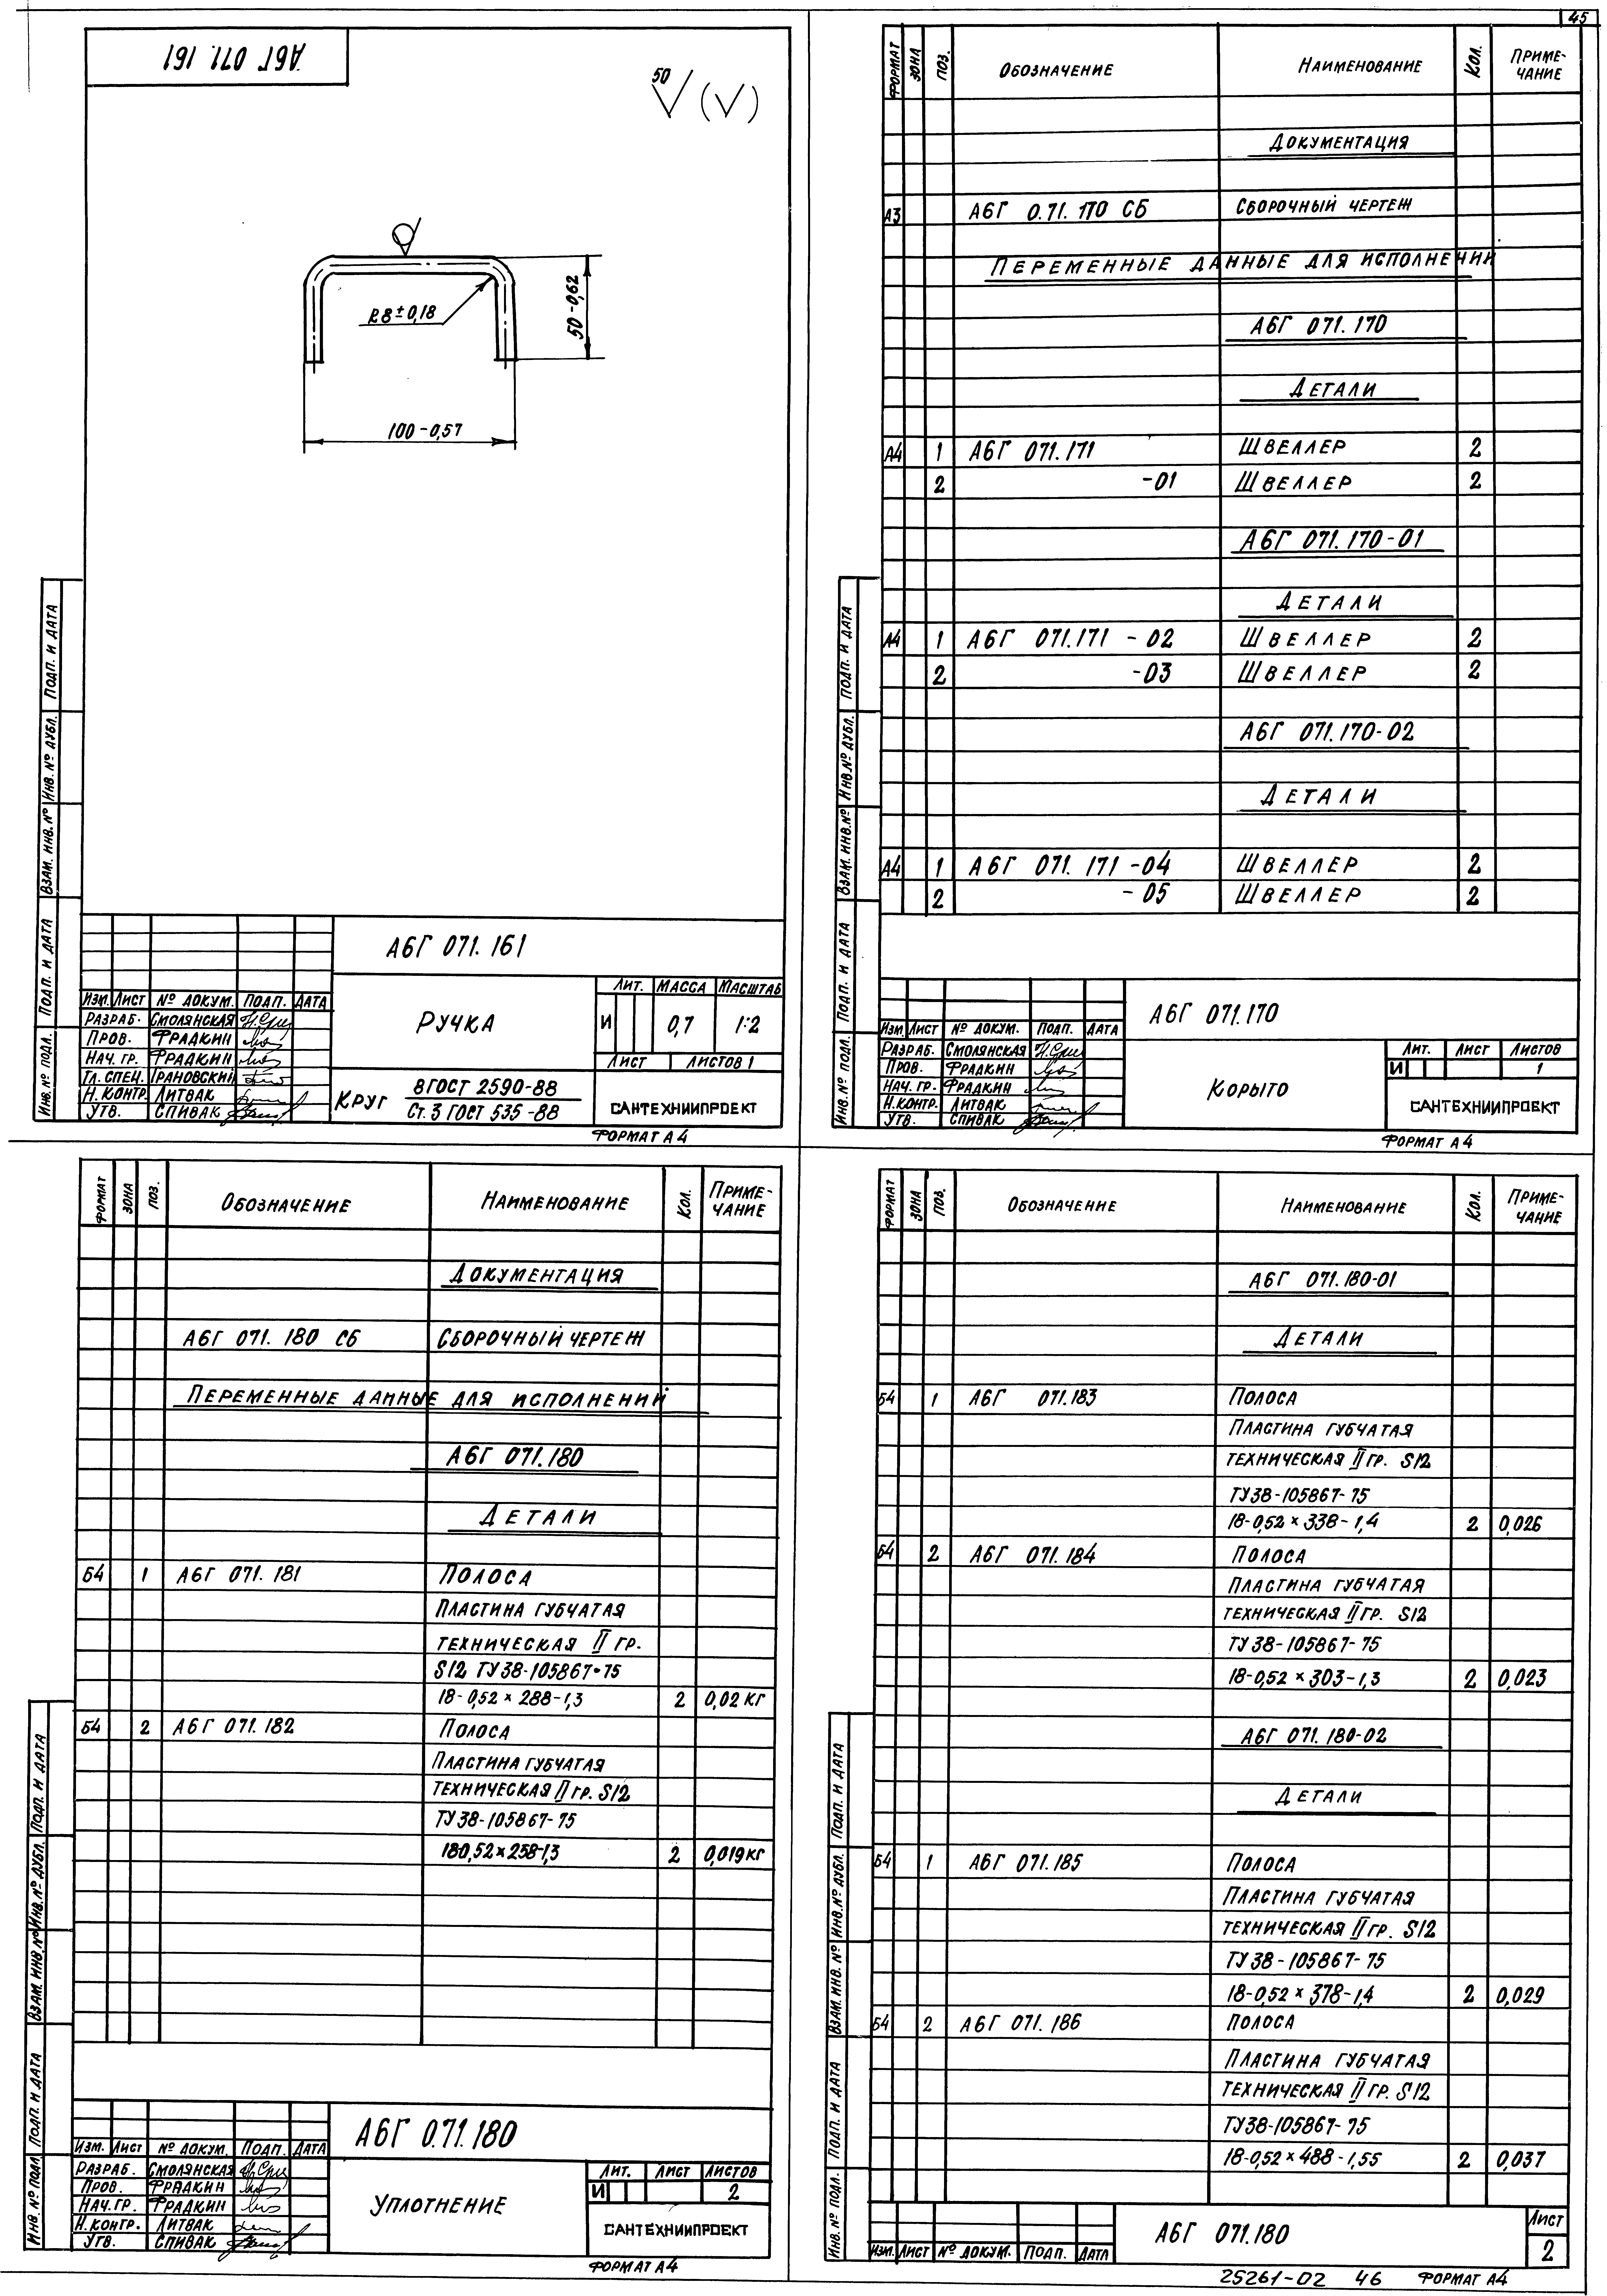 45
А6Г 071. 161
50
(√)
R8±0,18
50-0,62
100-0,57
Подп. и дата
Инв.№ дубл.
Взам. инв.№
Подп. и дата
Инв.№ подл.
А6Г 071. 161
Изм. Лист № докум. Подп. Дата
Разраб. Смолянская
Пров. Фрадкин
Нач. гр. Фрадкин
Гл. спец. Грановский
Н. контр. Литвак
Утв. Спивак
Ручка
Лит. Масса Масштаб
И 0,7 1:2
Лист Листов 1
Круг 8 ГОСТ 2590-88
Ст. 3 ГОСТ 535-88
САНТЕХНИИПРОЕКТ
Формат А4
Формат Зона Поз. Обозначение Наименование Кол. Приме-
чание
Документация
А3 А6Г 0.71. 170 СБ Сборочный чертеж
Переменные данные для исполнений
А6Г 071. 170
Детали
А4 1 А6Г 071. 171 Швеллер 2
2 -01 Швеллер 2
А6Г 071. 170-01
Детали
А4 1 А6Г 071.171 - 02 Швеллер 2
2 -03 Швеллер 2
А6Г 071.170-02
Детали
А4 1 А6Г 071. 171 -04 Швеллер 2
2 - 05 Швеллер 2
Подп. и дата
Инв.№ дубл.
Взам. инв.№
Подп. и дата
Инв.№ подл.
А6Г 071.170
Изм. Лист № докум. Подп. Дата
Разраб. Смолянская
Пров. Фрадкин
Нач. гр. Фрадкин
Н.контр. Литвак
Утв. Спивак
Корыто
Лит. Лист Листов
И 1
САНТЕХНИИПРОЕКТ
Формат А4
Формат Зона Поз. Обозначение Наименование Кол. Приме-
чание
Документация
А6Г 071. 180 СБ Сборочный чертеж
Переменные данные для исполнений
А6Г 071.180
Детали
Б4 1 А6Г 071. 181 Полоса
Пластина губчатая
техническая II гр.
S12 ТУ 38-105867-75
18-0,52 × 288-1,3 2 0,02 кг
Б4 2 А6Г 071. 182 Полоса
Пластина губчатая
техническая II гр. S12
ТУ 38-105867-75
180,52×258-1,3 2 0,019 кг
Подп. и дата
Инв.№ дубл.
Взам. инв.№
Подп. и дата
Инв.№ подл.
А6Г 0.71.180
Изм. Лист № докум. Подп. Дата
Разраб. Смолянская
Пров. Фрадкин
Нач. гр. Фрадкин
Н. контр. Литвак
Утв. Спивак
Уплотнение
Лит. Лист Листов
И 2
САНТЕХНИИПРОЕКТ
Формат А4
Формат Зона Поз. Обозначение Наименование Кол. Приме-
чание
А6Г 071.180-01
Детали
Б4 1 А6Г 071.183 Полоса
Пластина губчатая
техническая II гр. S12
ТУ 38-105867-75
18-0,52 × 338-1,4 2 0,026
Б4 2 А6Г 071.184 Полоса
Пластина губчатая
техническая II гр. S12
ТУ 38-105867-75
18-0,52 × 303-1,3 2 0,023
А6Г 071. 180-02
Детали
Б4 1 А6Г 071.185 Полоса
Пластина губчатая
техническая II гр. S12
ТУ 38-105867-75
18-0,52 × 378-1,4 2 0,029
Б4 2 А6Г 071. 186 Полоса
Пластина губчатая
техническая II гр. S12
ТУ38-105867-75
18-0,52×488-1,55 2 0,037
Подп. и дата
Инв.№ дубл.
Взам. инв. №
Подп. и дата
Инв. № подл.
Изм. Лист № докум. Подп. Дата
А6Г 071.180
Лист
2
25261-02 46 Формат А4